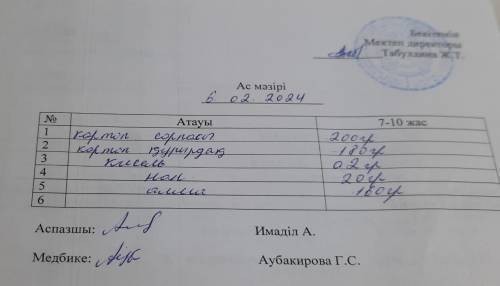 Бекітемін
Мектеп директоры
Табулдина Ж.Т.
Ас мәзірі
6 02. 2024
№ Атауы 7-10 жас
1 картоп сорпасы 200гр
2 картоп қуырдақ 180гр
3 кисель 0.2гр
4 нан 20гр
5 алма 160гр
6
Аспазшы: Имаділ А.
Медбике: Аубакирова Г.С.